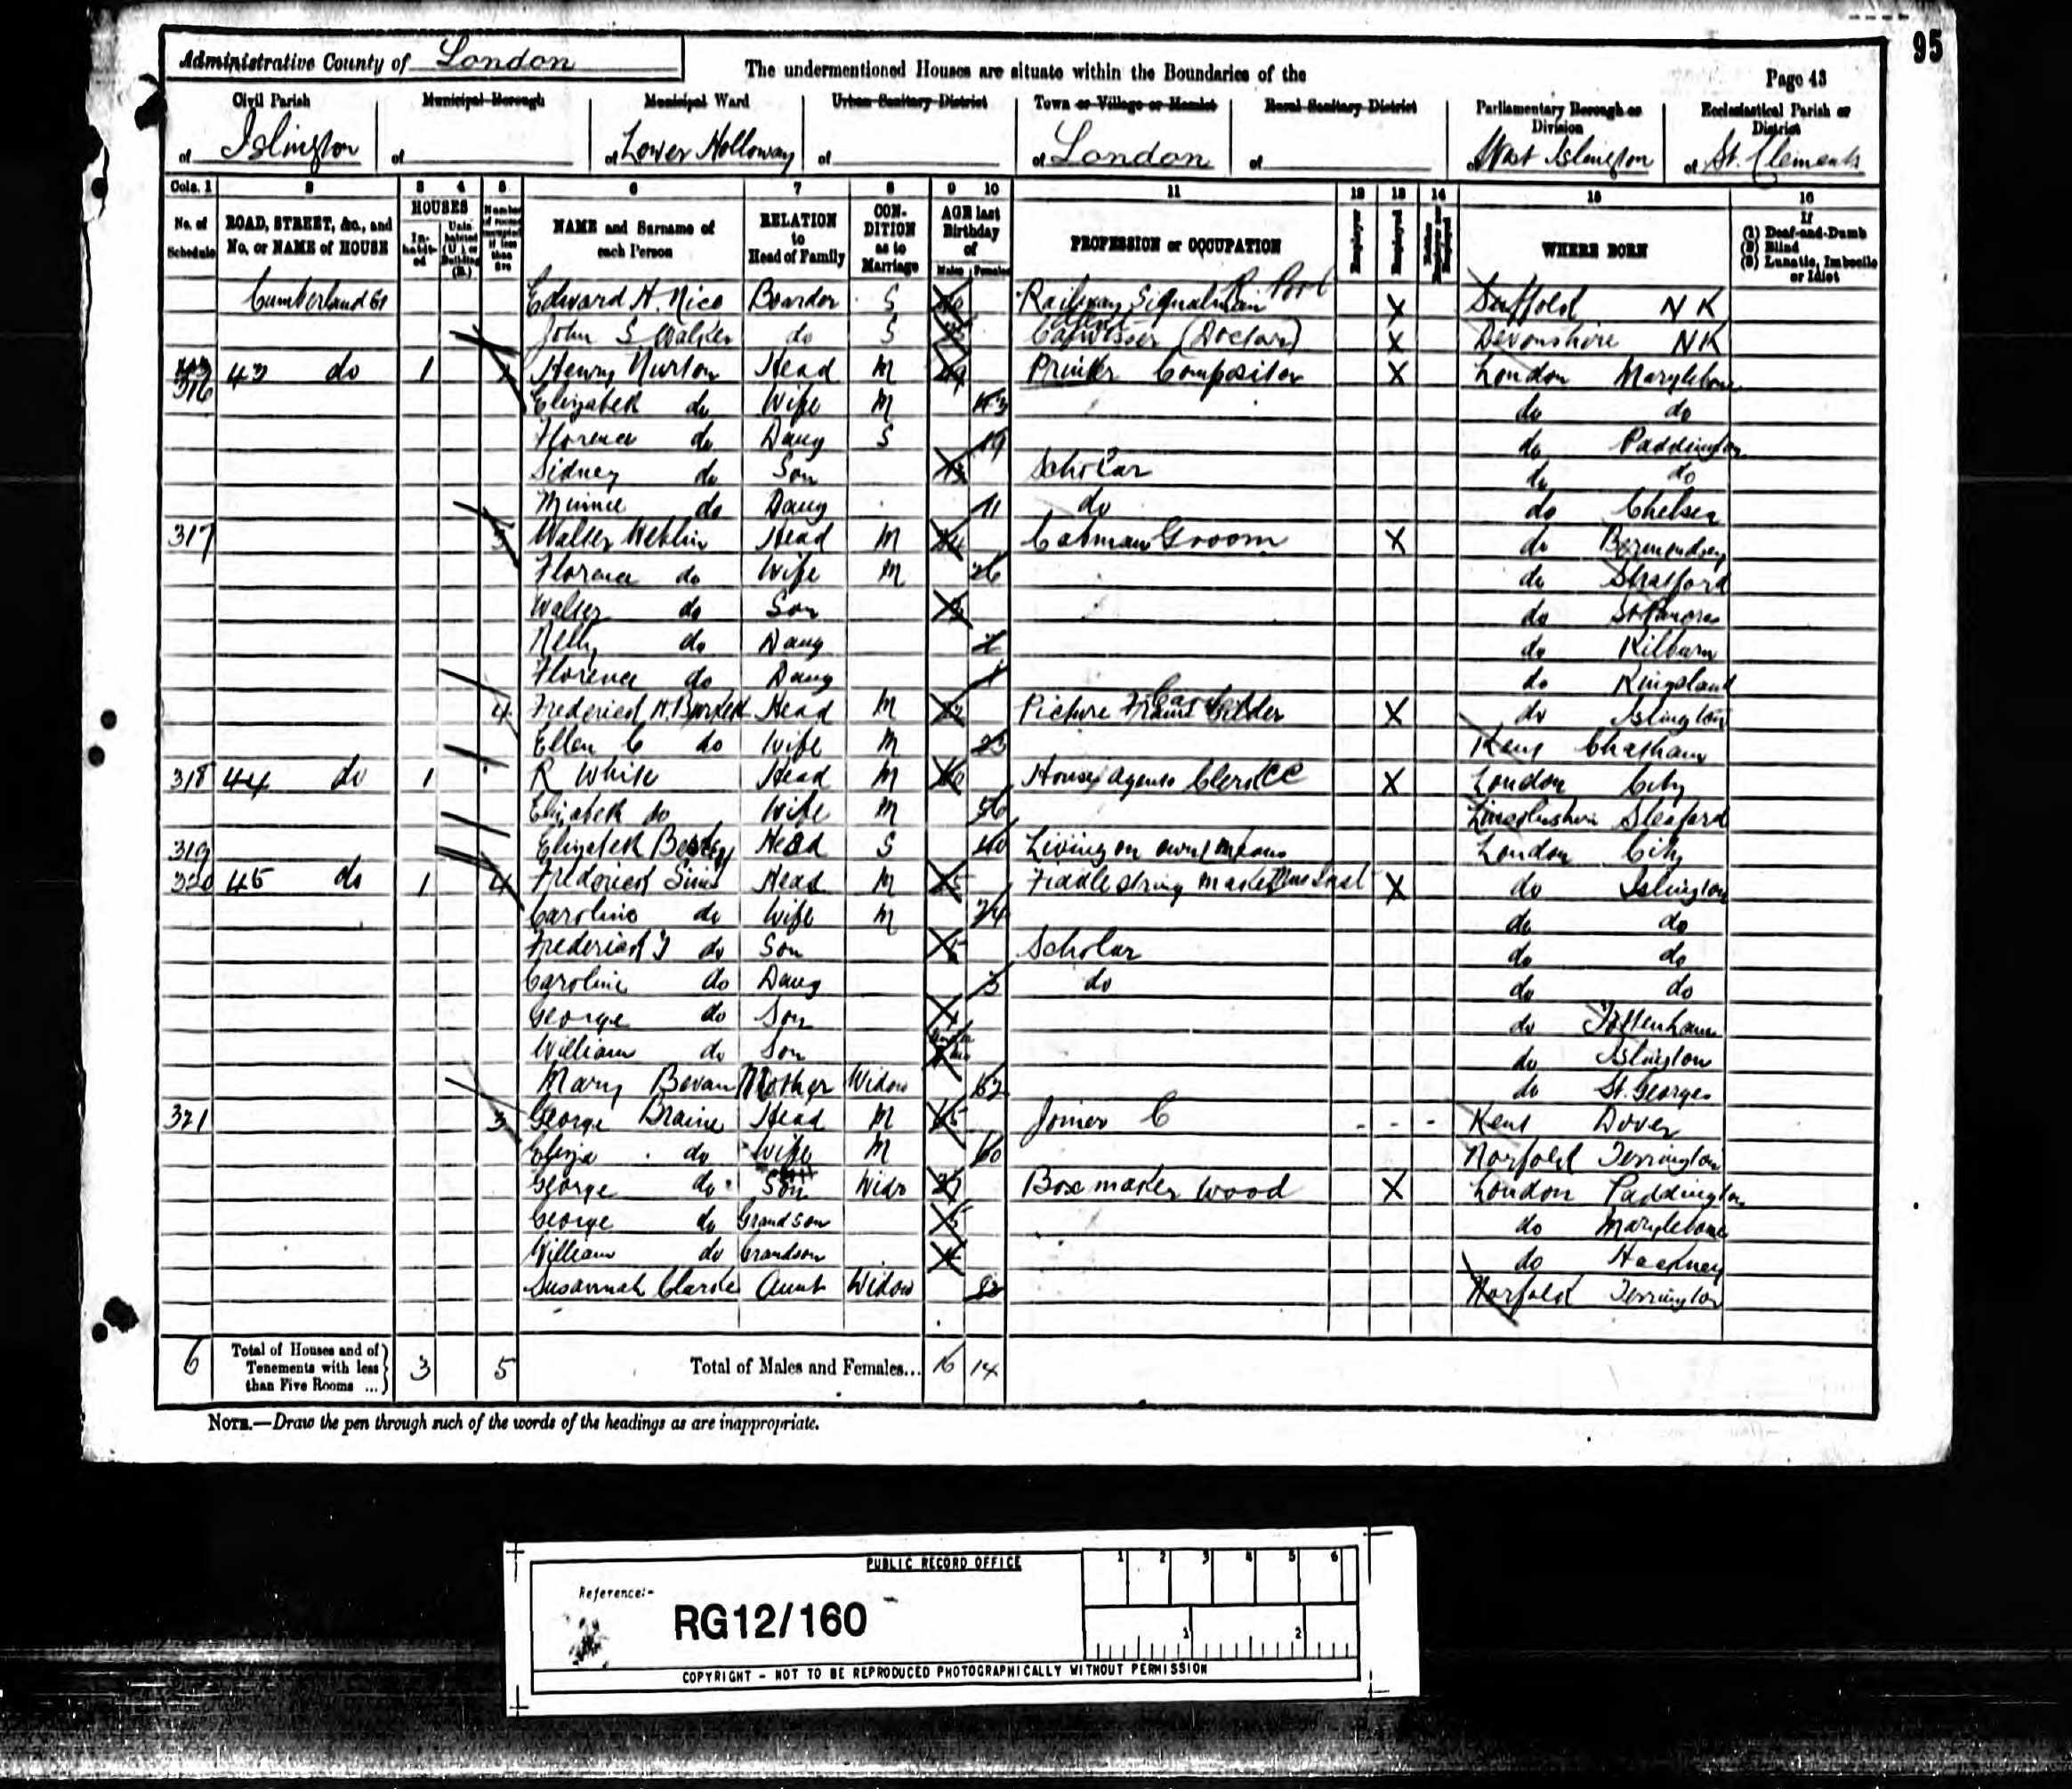 95
Administrative County of London
The undermentioned Houses are situate within the Boundaries of the
Page 43
Civil Parish of Islington
Municipal Borough of
Municipal Ward of Lower Holloway
Urban Sanitary District of
Town or Village or Hamlet of London
Rural Sanitary District of
Parliamentary Borough or Division of West Islington
Ecclesiastical Parish or District of St. Clements
Cols. 1 2 3 4 5 6 7 8 9 10 11 12 13 14 15 16
No. of Schedule
ROAD, STREET, &c., and No. or NAME of HOUSE
HOUSES
Inhabited
Uninhabited (U.) or Building (B.)
Number of rooms occupied if less than five
NAME and Surname of each Person
RELATION to Head of Family
CONDITION as to Marriage
AGE last Birthday of
Males Females
PROFESSION or OCCUPATION
Employer
Employed
Neither Employer nor Employed
WHERE BORN
If
(1) Deaf-and-Dumb
(2) Blind
(3) Lunatic, Imbecile or Idiot
Cumberland St Edward H. Nice Boarder S Railway Signalman X Suffolk N K
John S Walker do S (Doctors) X Devonshire NK
316 43 do 1 Henry Nurton Head M Printer Compositor X London Marylebone
Elizabeth do Wife M 43 do do
Florence do Daug S 19 do Paddington
Sidney do Son 13 Scholar do do
Minnie do Daug 11 do do Chelsea
317 3 Walter Heblin Head M Cabman Groom X do Bermondsey
Florence do Wife M 26 do Stratford
Walter do Son do St Pancras
Nelly do Daug 2 do Kilburn
Florence do Daug 1 do Kingsland
4 Frederick H. Head M 22 Picture Frame Gilder X do Islington
Ellen C do Wife M 23 Kent Chatham
318 44 do 1 R White Head M House agents Clerk CC X London City
Elizabeth do Wife M 56 Lincolnshire Sleaford
319 Elizabeth Head S 40 Living on own means London City
320 45 do 1 4 Frederick Sims Head M 25 Fiddle string maker X do Islington
Caroline do Wife M 24 do do
Frederick do Son 5 Scholar do do
Caroline do Daug 3 do do do
George do Son do Tottenham
William do Son do Islington
Mary Bevan Mother Widow 62 do St. Georges
321 3 George Braine Head M 65 Joiner C - - - Kent Dover
Eliza do Wife M 60 Norfolk Terrington
George do Son Widr Box maker wood X London Paddington
George do Grandson 5 do Marylebone
William do Grandson 4 do Hackney
Susannah Clarke Aunt Widow 82 Norfolk Terrington
6 Total of Houses and of Tenements with less than Five Rooms ... 3 5 Total of Males and Females... 16 14
NOTE.—Draw the pen through such of the words of the headings as are inappropriate.
PUBLIC RECORD OFFICE
1 2 3 4 5 6
Reference:-
RG12/160
1 2
COPYRIGHT - NOT TO BE REPRODUCED PHOTOGRAPHICALLY WITHOUT PERMISSION